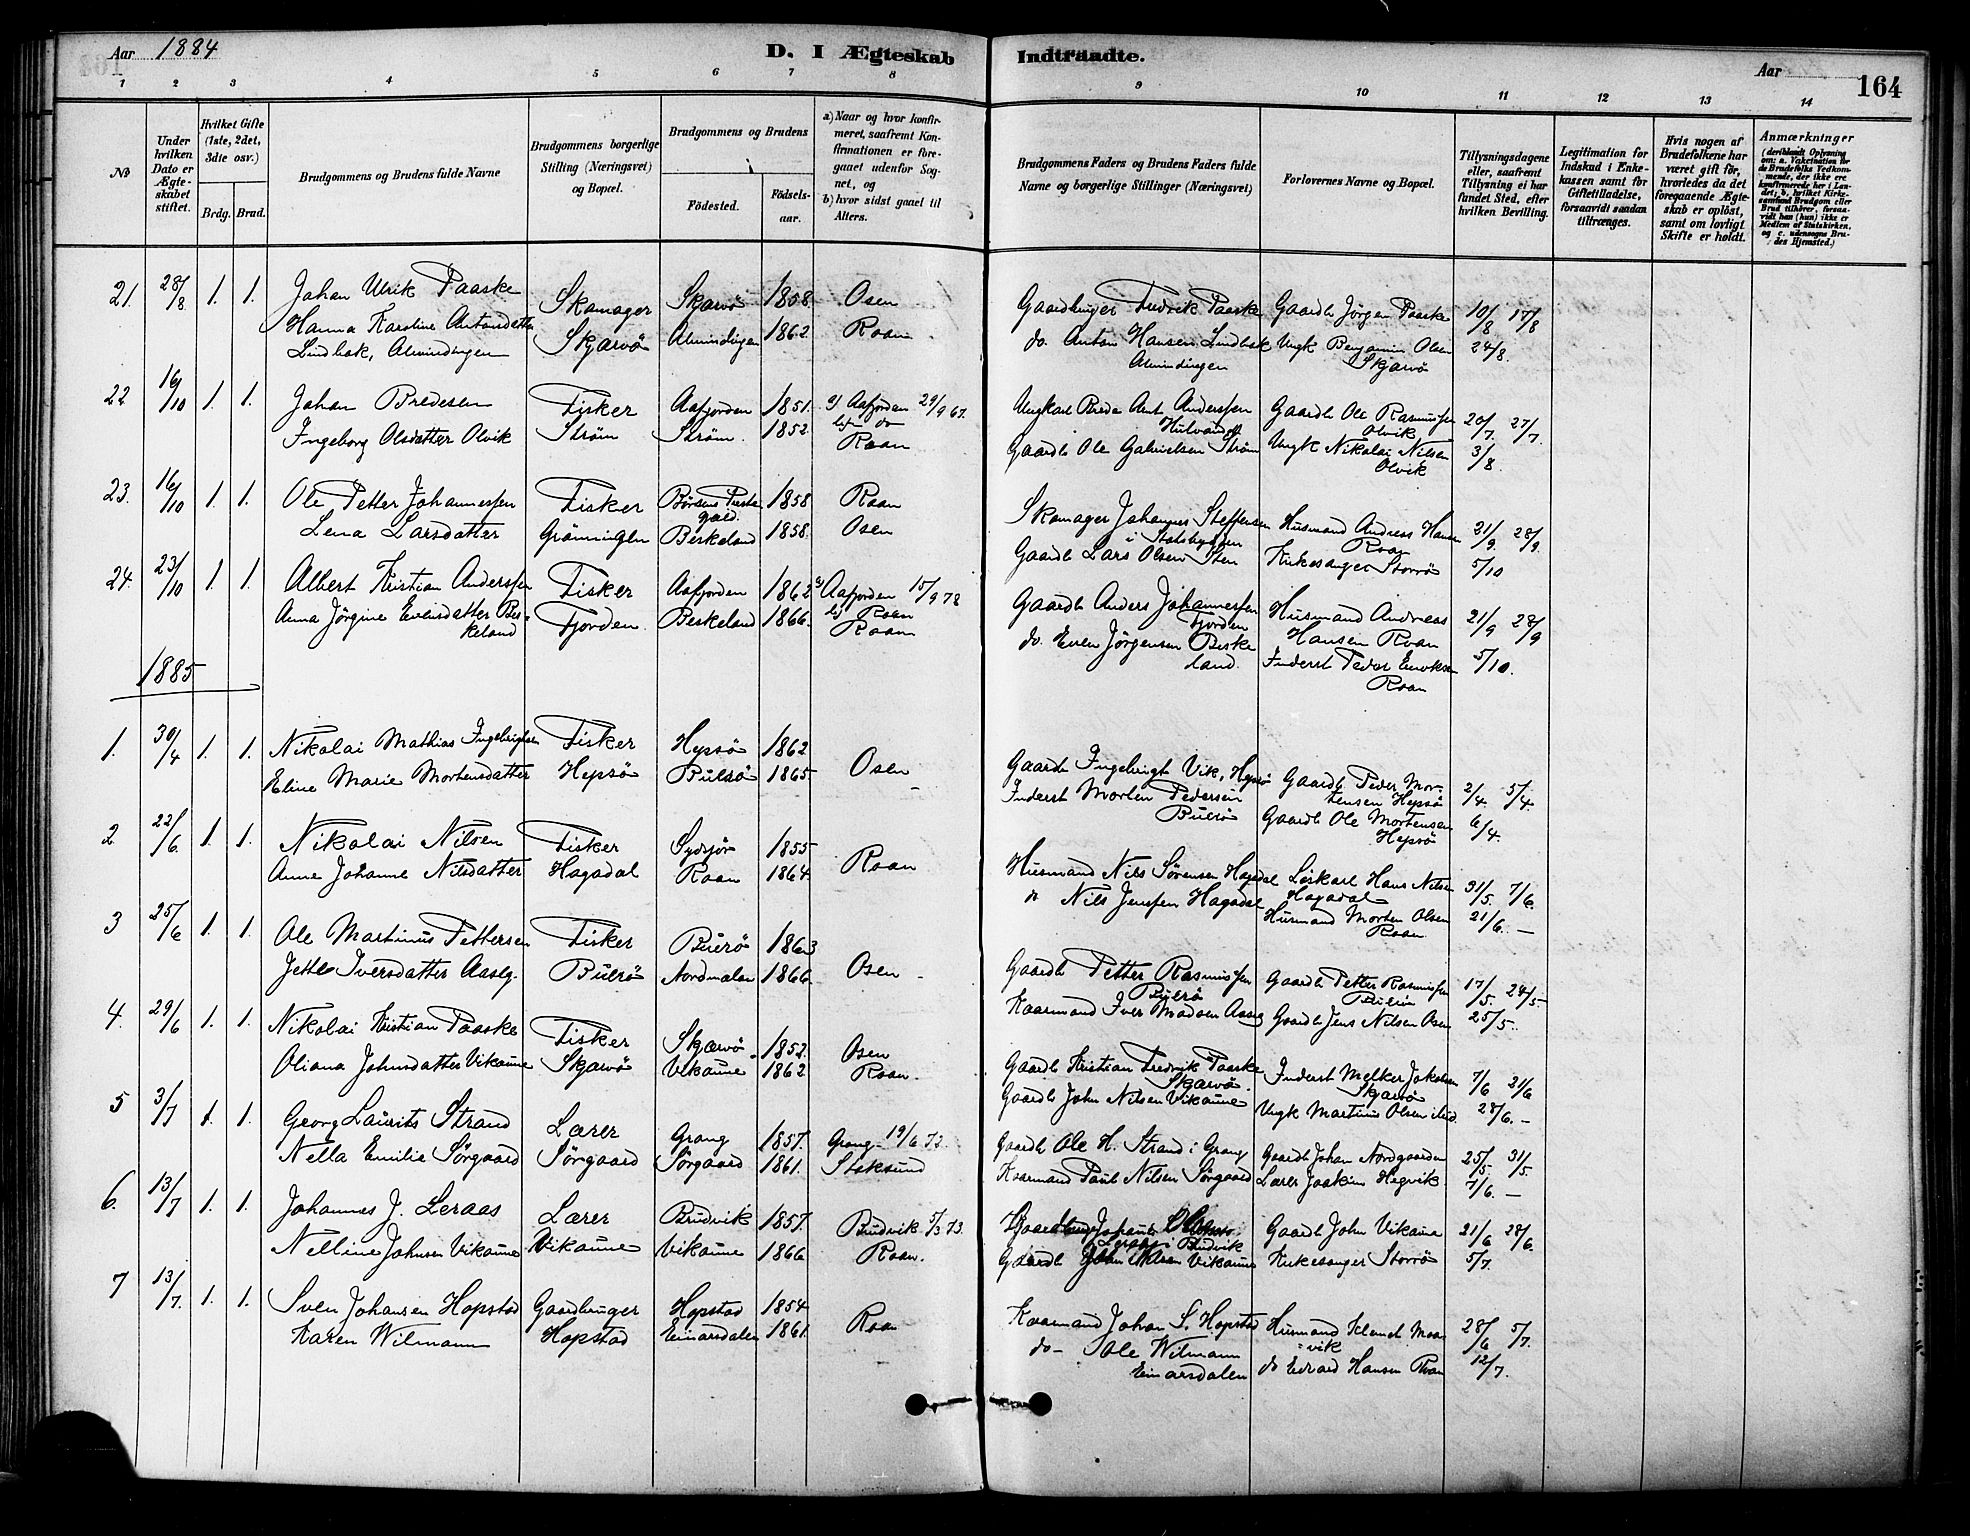 Aar 1884
D. I Ægteskab Indtraadte.
Aar 164
1 2 3 4 5 6 7 8 9 10 11 12 13 14
No
Under hvilken Dato er Ægteskabet stiftet.
Hvilket Gifte (1ste, 2det, 3die osv.)
Brdg. Brud.
Brudgommens og Brudens fulde Navne
Brudgommens borgerlige Stilling (Næringsvei) og Bopæl.
Brudgommens og Brudens
Fødested. Fødselsaar.
a) Naar og hvor konfirmeret, saafremt Konfirmationen er foregaaet udenfor Sognet, og
b) hvor sidst gaaet til Alters.
Brudgommens Faders og Brudens Faders fulde Navne og borgerlige Stillinger (Næringsvei)
Forlovernes Navne og Bopæl.
Tillysningsdagene eller, saafremt Tillysning ei har fundet Sted, efter hvilken Bevilling.
Legitimation for Indskud i Enkekassen samt for Giftetilladelse, forsaavidt saadan tiltrænges.
Hvis nogen af Brudefolkene har været gift før, hvorledes da det foregaaende Ægteskab er opløst, samt om lovligt Skifte er holdt.
Anmærkninger
(deriblandt Oplysning om: a. Vakcination for de Brudefolks Vedkommende, der ikke ere konfirmerede her i Landet; b. hvilket Kirkesamfund Brudgom eller Brud tilhører, forsaavidt han (hun) ikke er Medlem af Statskirken, og c. udensogns Brudes Hjemsted.)
21. 28/8 1. 1. Johan Ulrik Paaske Skomager Skjærvø 1858 Osen Gaardbruger Fredrik Paaske Gaardb Jørgen Paaske 10/8 17/8
Hanna Karoline Antonsdatter Skjærvø Almindingen 1862 Roan do. Anton Hansen Lindbak Ungk Benjamin Olsen 24/8.
Lindbak, Almindingen Almindingen Skjærvø
22 16/10 1. 1. Johan Bredesen Fisker Aafjorden 1851. a) Aafjorden 29/9 67. Ungkarl Brede Ant Anderssen Gaardb Ole Rasmussen 20/7. 27/7.
Hulvand Olvik
Ingeborg Olsdatter Olvik Strøm Strøm. 1852 b) do Roan Gaardb Ole Gabrielsen Strøm Ungk Nikolai Nilsen 3/8.
Olvik
23. 16/10 1. 1. Ole Petter Johannessen Fisker Børsens Præstegjæld. 1858 Roan Skomager Johannes Steffensen Husmand Andreas Hansen 21/9. 28/9.
i Stadsbygden Roan
Lena Larsdatter Grønningen Beskeland 1858. Osen Gaardb Lars Olsen Sten Kirkesanger Storrø 5/10
24. 23/10 1. 1. Albert Kristian Anderssen Fisker Aafjorden 1862 a) Aafjorden 15/9 78 Gaardb Anders Johannessen Husmand Andreas 21/9 28/9
b) Roan Fjorden Hansen Roan
Anna Jørgine Evensdatter Beskeland Fjorden. Beskeland 1866. Roan do. Even Jørgensen Beskeland. Inderst Peder 5/10.
Roan
1885
1. 30/4 1. 1. Nikolai Mathias Ingebrigtsen Fisker Hepsø 1862 Gaardb Ingebrigt Vik, Hepsø Gaardb Peder Mortensen Hepsø 2/4 5/4.
Eline Marie Mortensdatter Hepsø Buerø 1865 Osen Inderst Morten Pedersen Buerø Gaardb Ole Mortensen Hepsø 6/4.
2 22/6. 1. 1. Nikolai Nilsen Fisker 1855 Roan Husmand Nils Sørensen Hagadal Løskarl Hans Nilsen Hagadal 31/5. 7/6.
Anne Johanne Nilsdatter Hagadal Roan 1864. do Nils Jenssen Hagadal Husmand Morten Olsen Roan 21/6. –
3 25/6 1. 1. Ole Martinus Pettersen Fisker Buerø 1863 Gaardb Petter Rasmussen Buerø Gaardb Petter Rasmussen Buerø 17/5. 24/5.
Iversdatter Aaseg. Buerø Nordmelan 1866. Osen Kaarmand Iver Madsen Aaseg Gaardb Jens Nilsen Osen 25/5.
4. 29/6 1. 1. Nikolai Kristian Paaske Fisker Skjærvø 1852. Osen Gaardb Kristian Fredrik Paaske Skjærvø. Inderst Melker Jakobsen Skjærvø 7/6 21/6
Oliana Johnsdatter Vikaune Skjærvø Vikaune 1862 Roan. Gaardb John Nilsen Vikaune Ungk Martinus Olsen ibid. 28/6. –
5 3/7 1. 1. Georg Laurits Strand Lærer Grong 1857. Grong 19/6 72. Gaardb Ole H. Strand i Grong Gaardb Johan Nordgaarden 25/5 31/5
Nella Emilie Sørgaard Sørgaard Sørgaard 1861. Stoksund Kaarmand Paul Nilsen Sørgaard Lærer Joakim Hegvik. 7/6. –
6. 13/7 1. 1. Johannes J. Leraas Lærer Budvik 1857. Budvik 5/3 73. Leraas i Budvik Gaardb John Vikaune 21/6 28/6.
Nelline Johnsen Vikaune Vikaune Vikaune 1866 Roan. Gaardb John Nilsen Vikaune Kirkesanger Storrø 5/7.
7 13/7. 1. 1. Sven Johansen Hopstad Gaardbruger Hopstad 1854 Roan Kaarmand Johan S. Hopstad Husmand 28/6 5/7.
Karen Wilmann Hopstad Einarsdalen 1861. do – Ole Wilmann Einarsdalen do Edvard Hansen Roan 12/7.